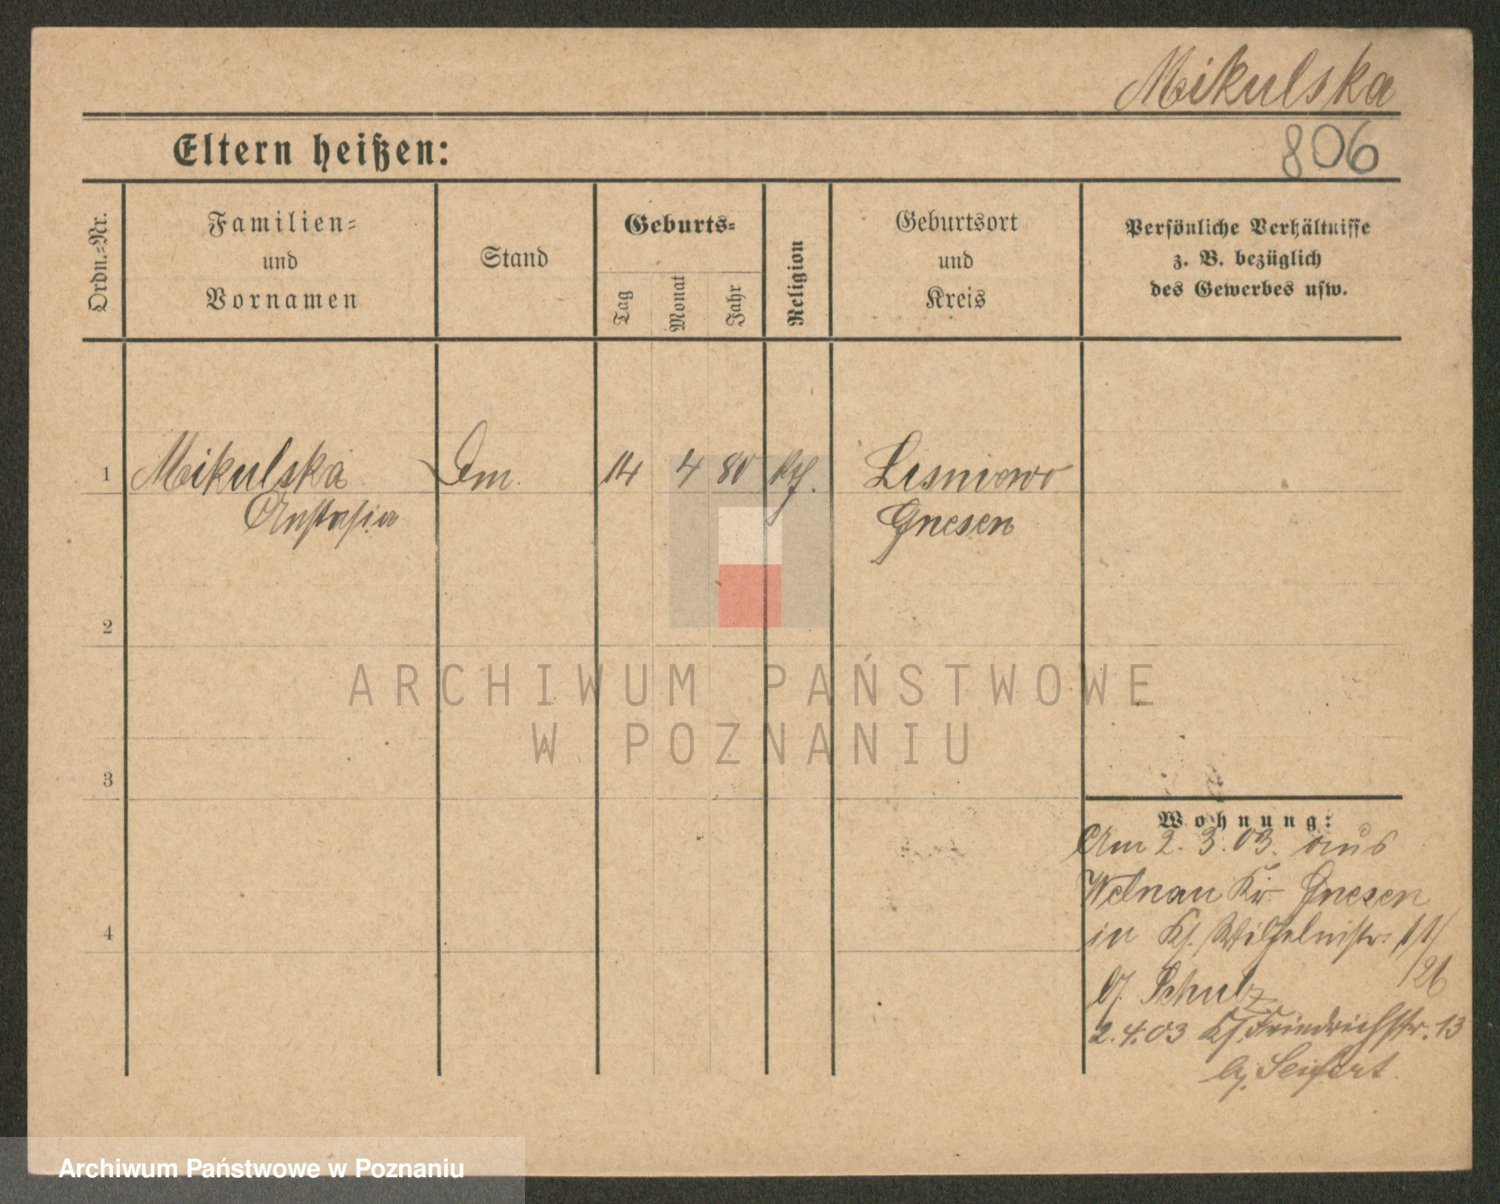 Mikulska
806
Eltern heißen:
Ordn.=Nr.
Familien=
und
Vornamen
Stand
Geburts=
Tag
Monat
Jahr
Religion
Geburtsort
und
Kreis
Persönliche Verhältnisse
z. B. bezüglich
des Gewerbes usw.
1
Mikulska
Anstasia
14 4 80
Lisniewo
Gnesen
2
ARCHIWUM PAŃSTWOWE
W POZNANIU
3
4
Wohnung:
Am 2. 3. 03. aus
Welnau Kr. Gnesen
in Wilhelmstr.
26
Schulz
2. 4. 03 Friedrichstr. 13
Seifert
Archiwum Państwowe w Poznaniu